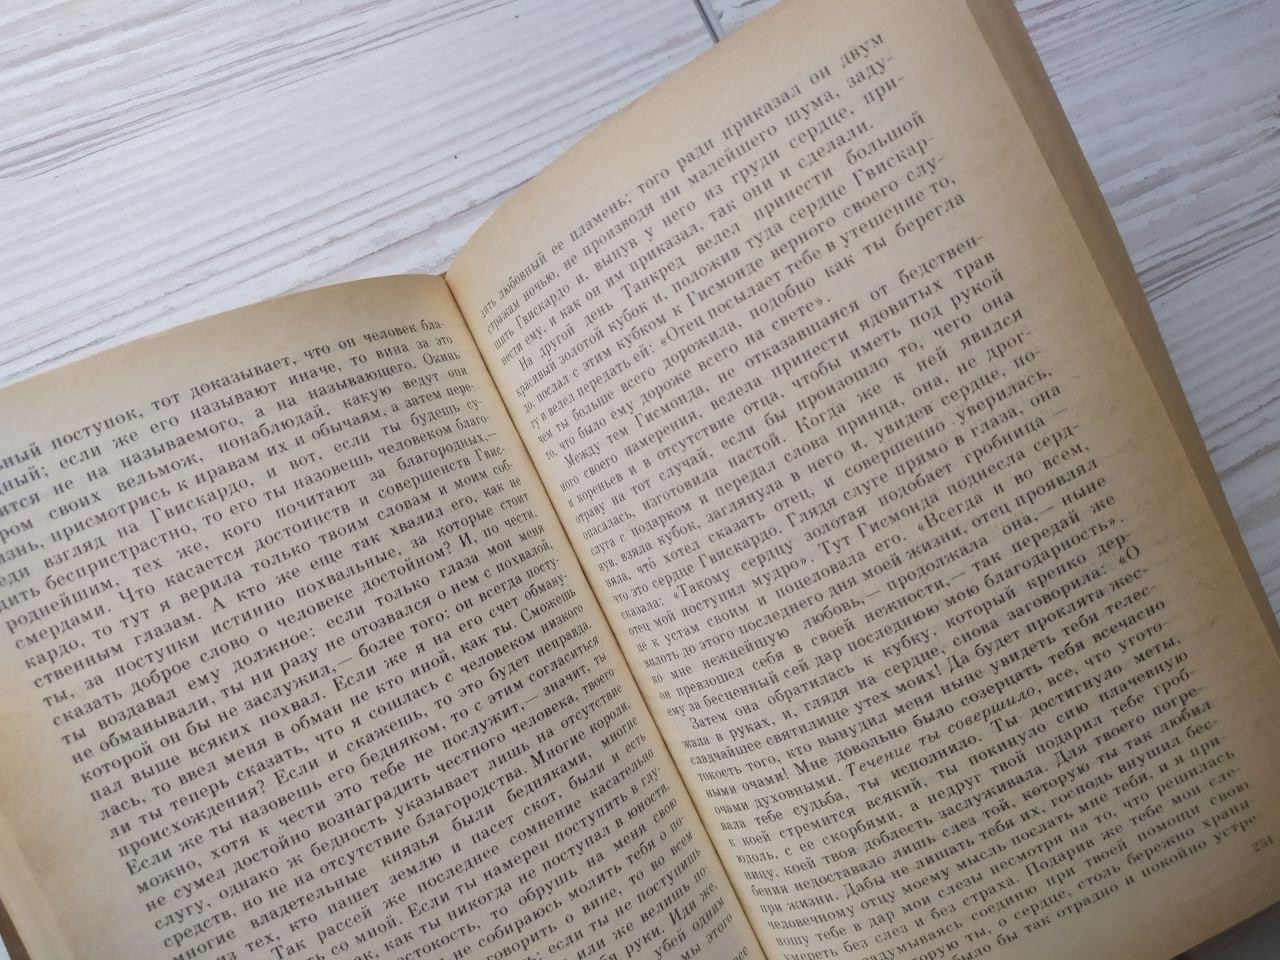 ный поступок, тот доказывает, что он человек бла-
ный; если же его называют иначе, то вина за это
ится не на называемого, а на называющего. Окинь
ром своих вельмож, понаблюдай, какую ведут они
знь, присмотрись к нравам их и обычаям, а затем пере-
еди взгляд на Гвискардо, и вот, если ты будешь су-
дить беспристрастно, то его ты назовешь человеком благо-
роднейшим, тех же, кого почитают за благородных,—
смердами. Что касается достоинств и совершенств Гвис-
кардо, то тут я верила только твоим словам и моим соб-
ственным глазам. А кто же еще так хвалил его, как не
ты, за поступки истинно похвальные, за которые стоит
сказать доброе слово о человеке достойном? И, по чести,
ты воздавал ему должное: если только глаза мои меня
не обманывали, ты ни разу не отозвался о нем с похвалой,
которой он бы не заслужил,— более того: он всегда посту-
пал выше всяких похвал. Если же я на его счет обману-
лась, то ввел меня в обман не кто иной, как ты. Сможешь
ли ты теперь сказать, что я сошлась с человеком низкого
происхождения? Если и скажешь, то это будет неправда.
Если же ты назовешь его бедняком, то с этим согласиться
можно, хотя к чести это тебе не послужит,— значит, ты
не сумел достойно вознаградить честного человека, твоего
слугу, однако ж бедность указывает лишь на отсутствие
средств, но не на отсутствие благородства. Многие короли,
многие владетельные князья были бедняками, многие
из тех, кто пашет землю и пасет скот, были и есть
Так рассей же последнее сомнение касательно
со мной. Если ты намерен поступить в
как ты никогда не поступал в юности,
то обрушь на меня свою
не собираюсь молить тебя о по-
говорить о вине, то во всем
если ты не поступишь
если же велишь по-
руки. Иди же,
убей одним
мы этого
дить любовный ее пламень; того ради приказал он двум
стражам ночью, не производя ни малейшего шума, заду-
шить Гвискардо и, вынув у него из груди сердце, при-
нести ему, и как он им приказал, так они и сделали.
На другой день Танкред велел принести большой
красивый золотой кубок и, положив туда сердце Гвискар-
до, послал с этим кубком к Гисмонде верного своего слу-
гу и велел передать ей: «Отец посылает тебе в утешение то,
чем ты больше всего дорожила, подобно как ты берегла
то, что было ему дороже всего на свете».
Между тем Гисмонда, не отказавшаяся от бедствен-
ного своего намерения, велела принести ядовитых трав
и кореньев и в отсутствие отца, чтобы иметь под рукой
отраву на тот случай, если бы произошло то, чего она
опасалась, изготовила настой. Когда же к ней явился
слуга с подарком и передал слова принца, она, не дрог-
нув, взяла кубок, заглянула в него и, увидев сердце, по-
няла, что́ хотел сказать отец, и совершенно уверилась,
что это сердце Гвискардо. Глядя слуге прямо в глаза, она
сказала: «Такому сердцу золотая подобает гробница —
отец мой поступил мудро». Тут Гисмонда поднесла серд-
це к устам своим и поцеловала его. «Всегда и во всем,
вплоть до этого последнего дня моей жизни, отец проявлял
ко мне нежнейшую любовь,— продолжала она,— ныне
он превзошел себя в своей нежности,— так передай же
ему за бесценный сей дар последнюю мою благодарность».
Затем она обратилась к кубку, который крепко дер-
жала в руках, и, глядя на сердце, снова заговорила: «О
сладчайшее святилище утех моих! Да будет проклята жес-
токость того, кто вынудил меня ныне увидеть тебя телес-
ными очами! Мне довольно было созерцать тебя всечасно
очами духовными. Течение ты совершило, все, что угото-
вала тебе судьба, ты исполнило. Ты достигнуло меты,
к коей стремится всякий, ты покинуло сию плачевную
юдоль, с ее скорбями, а недруг твой подарил тебе гроб-
ницу, коей твоя доблесть заслуживала. Для твоего погре-
бения недоставало лишь слез той, которую ты так любил
при жизни. Дабы не лишать тебя их, господь внушил бес-
человечному отцу моему мысль послать мне тебя, и я при-
ношу тебе в дар мои слезы несмотря на то, что решилась
умереть без слез и без страха. Подарив же тебе мои сле-
задумываясь соединю при твоей помощи свою
которую ты, о сердце, столь бережно храни
было бы так отрадно и покойно устре-
251